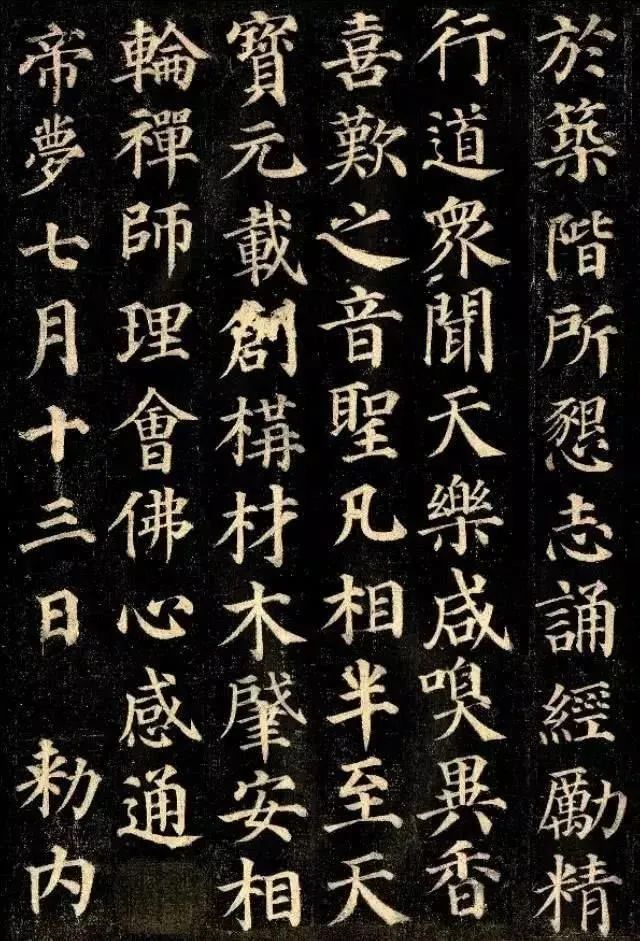 於築階所懇志誦經勵精
行道衆聞天樂咸嗅異香
喜歎之音聖凡相半至天
寶元載創構材木肇安相
輪禪師理會佛心感通
帝夢七月十三日 敕内